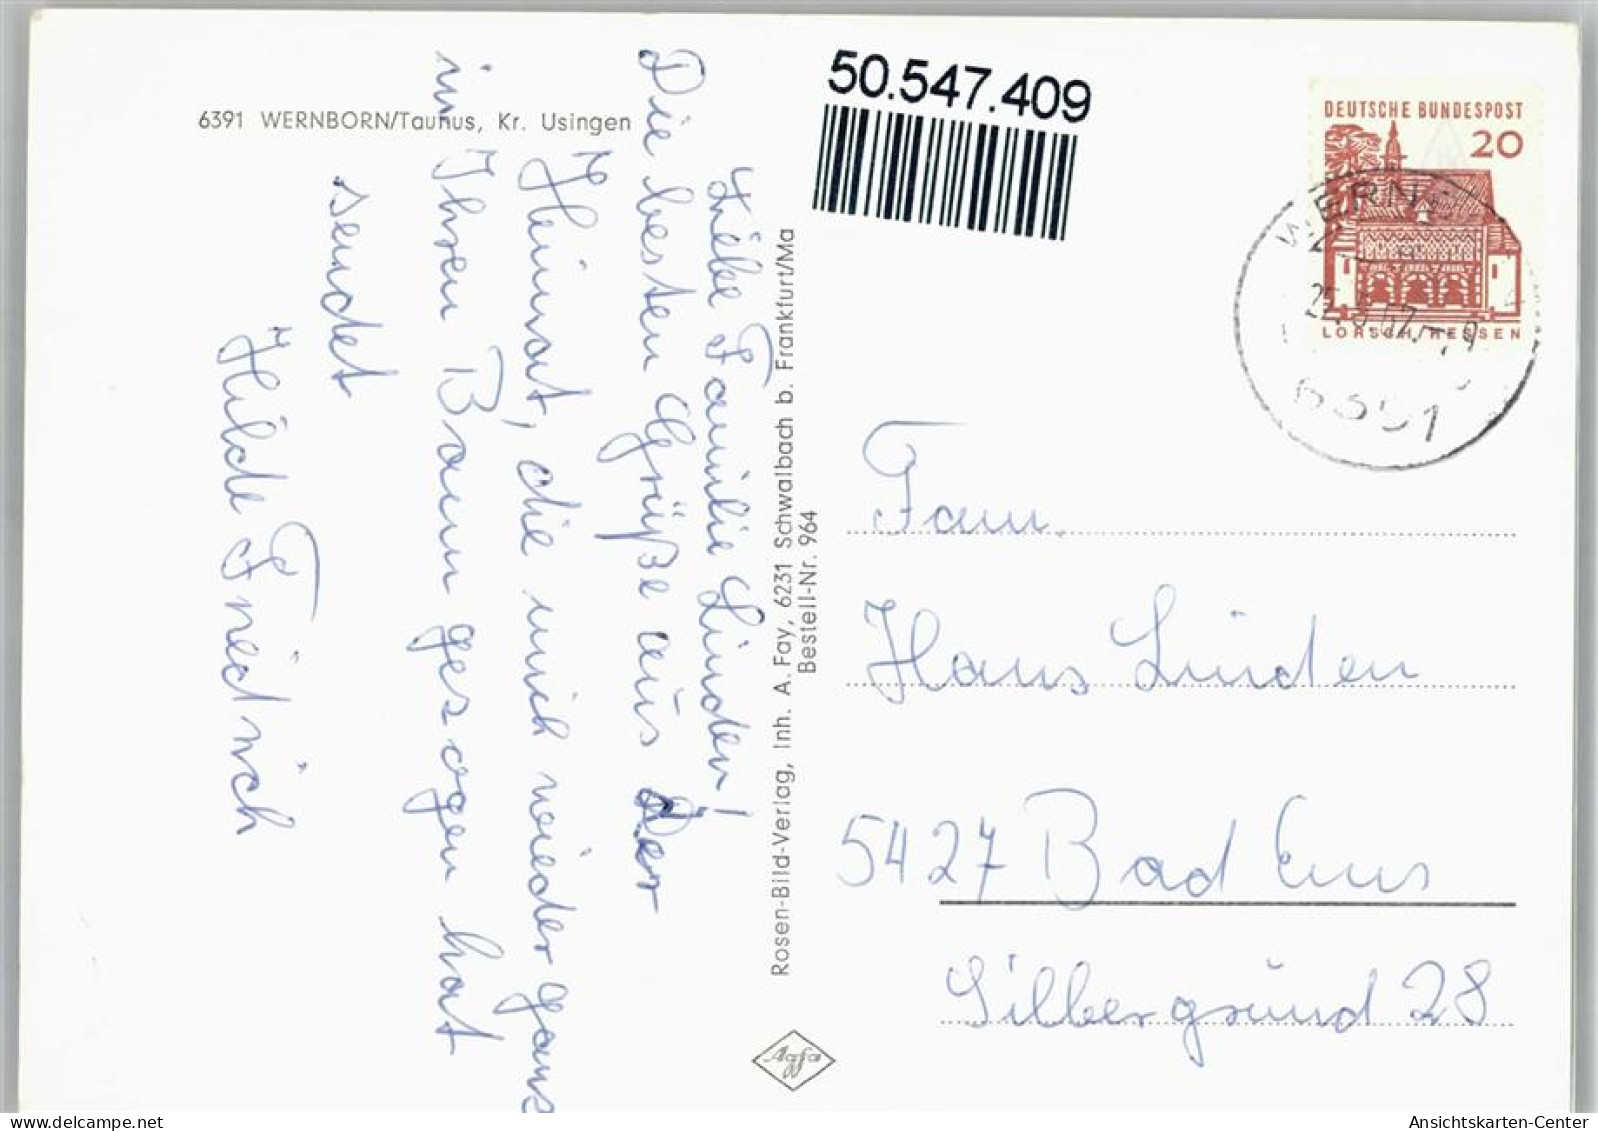 6391 WERNBORN/Taunus, Kr. Usingen
Liebe Familie Linden!
Die besten Grüße aus der
Heimat, die mich wieder ganz
in Ihren Bann gezogen hat
sendet
Hilde Friedrich
Rosen-Bild-Verlag, Inh. A. Fay, 6231 Schwalbach b. Frankfurt/Ma
Bestell-Nr. 964
Agfa
50.547.409
DEUTSCHE BUNDESPOST
20
LORSCH/HESSEN
Fam.
Hans Linden
5427 Bad Ems
Silbergrund 28
Ansichtskarten-Center